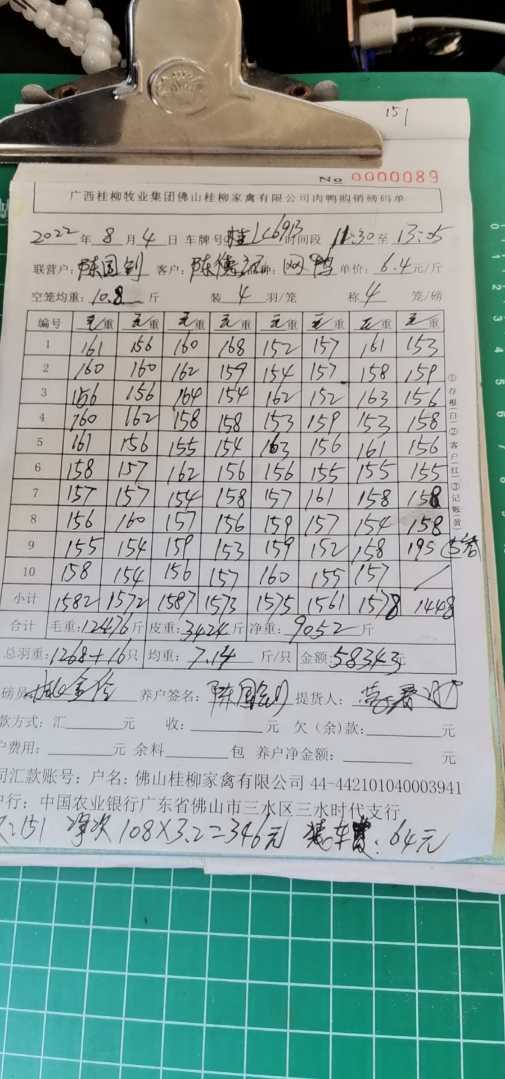 151
No 0000089
广西桂柳牧业集团佛山桂柳家禽有限公司肉鸭购销磅码单
2022 年 8 月 4 日 车牌号 桂 时间段 11:30 至 13:05
联营户: 陈国剑 客户: 陈 网鸭 单价: 6.4 元/斤
空笼均重: 10.8 斤 装 4 羽/笼 称 4 笼/磅
编号 毛重 毛重 毛重 毛重 毛重 毛重 毛重 毛重
1 161 156 160 168 152 157 161 153
2 160 160 162 159 154 157 158 159
3 156 156 164 154 162 152 163 156
4 160 162 158 158 153 159 153 158
5 161 156 155 154 163 156 161 156
6 158 157 162 156 156 155 155 155
7 157 157 154 158 157 161 158 158
8 156 160 157 156 159 157 154 158
9 155 154 159 153 159 152 158 195
10 158 154 156 157 160 155 157 /
小计 1582 1572 1587 1573 1575 1561 1578 1448
合计 毛重: 12476 斤 皮重: 3424 斤 净重: 9052 斤
总羽重: 1268+16 只 均重: 7.14 斤/只 金额: 58343 元
磅员 养户签名: 陈国剑 提货人:
款方式: 汇 元 收: 元 欠(余)款: 元
户费用: 元 余料 包 养户净金额: 元
司汇款账号: 户名: 佛山桂柳家禽有限公司 44-442101040003941
户行: 中国农业银行广东省佛山市三水区三水时代支行
:151 净次 108×3.2=346元 车费: 64元
①存根(白)②客户(红)③记账(黄)